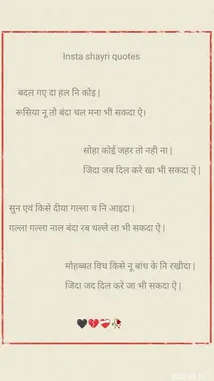 Insta shayri quotes
बदल गए दा हल नि कोइ |
रूसिया नू तो बंदा चल मना भी सकदा ऐ।
सोहा कोई जहर तो नही ना |
जिदा जब दिल करे खा भी सकदा ऐ |
सुन एवं किसे दीया गल्ला च नि आइदा |
गल्ला गल्ला नाल बंदा रब थल्ले ला भी सकदा ऐ |
मोहब्बत विच किसे नू बांच के नि रखीदा |
जिदा जद दिल करे जा भी सकदा ऐ |